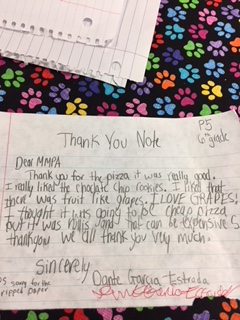 P5
6th grade
Thank You Note
Dear MMPA
Thank you for the pizza it was really good.
I really liked the choclate chip cookies. I liked that
there was fruit like grapes. I LOVE GRAPES!
I thought it was going to be cheap pizza
but it was and that can be expensive
thankyou we all thank you very much.
Sincerly
Dante Garcia Estrada
PS sorry for the
ripped paper